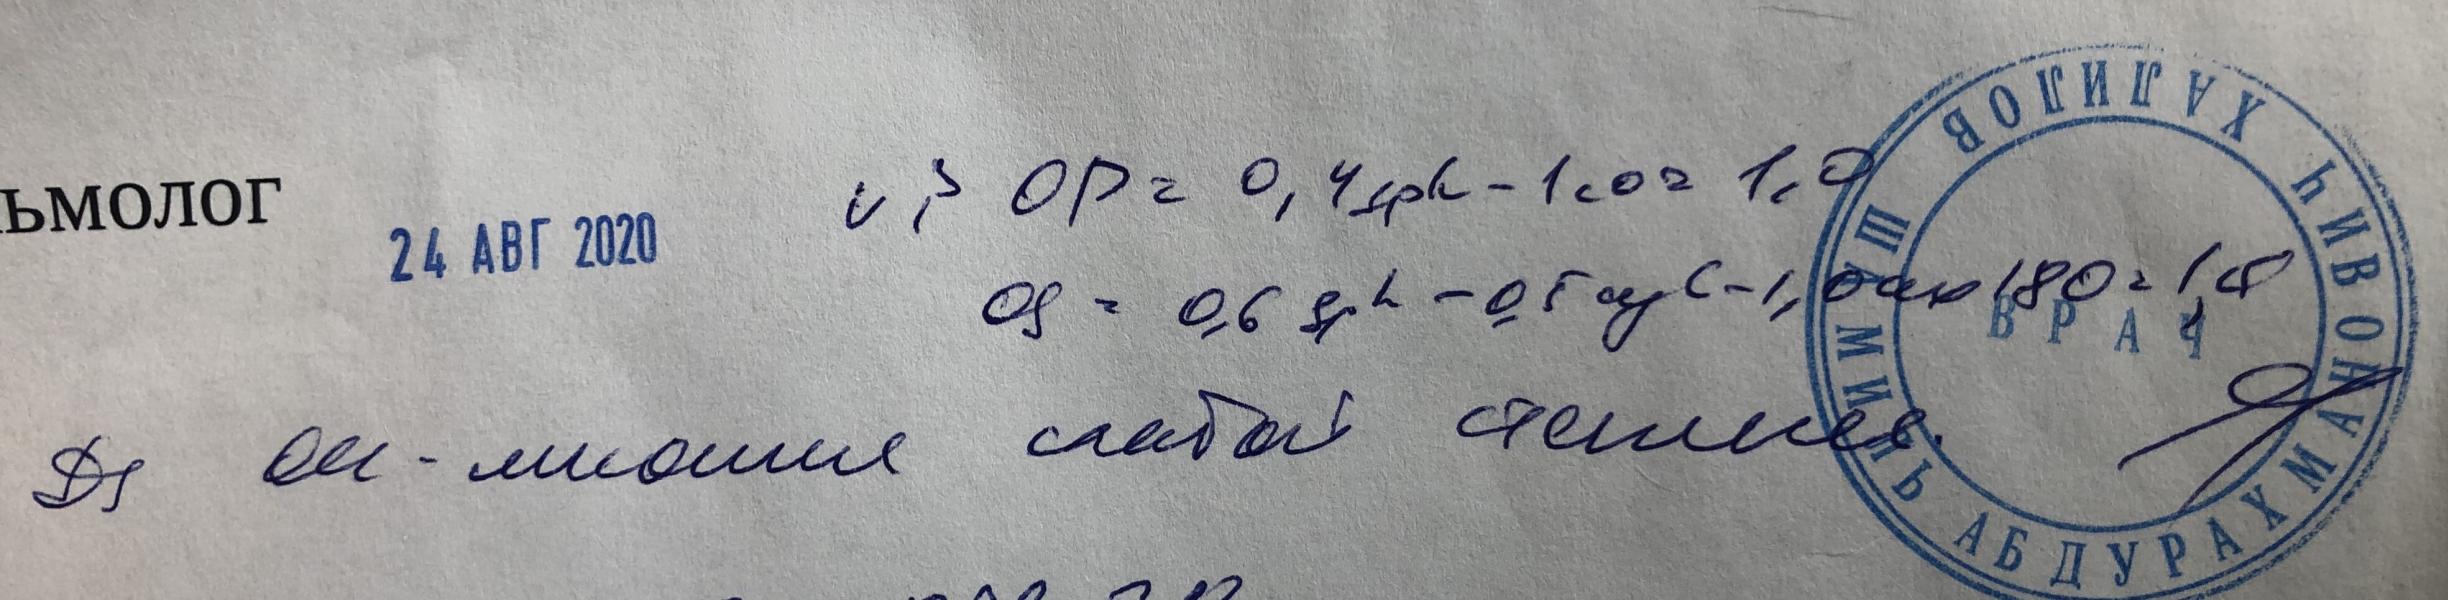 ьмолог
24 АВГ 2020
OD = 0,4 sph - 1.0 = 1,0
OS = 0,6 sph - 0,5 cyl - 1,0 ax 180 = 1,0
Ds OU - миопия слабой степени.
ХАЛИЛОВ ШАМИЛЬ АБДУРАХМАНОВИЧ
ВРАЧ